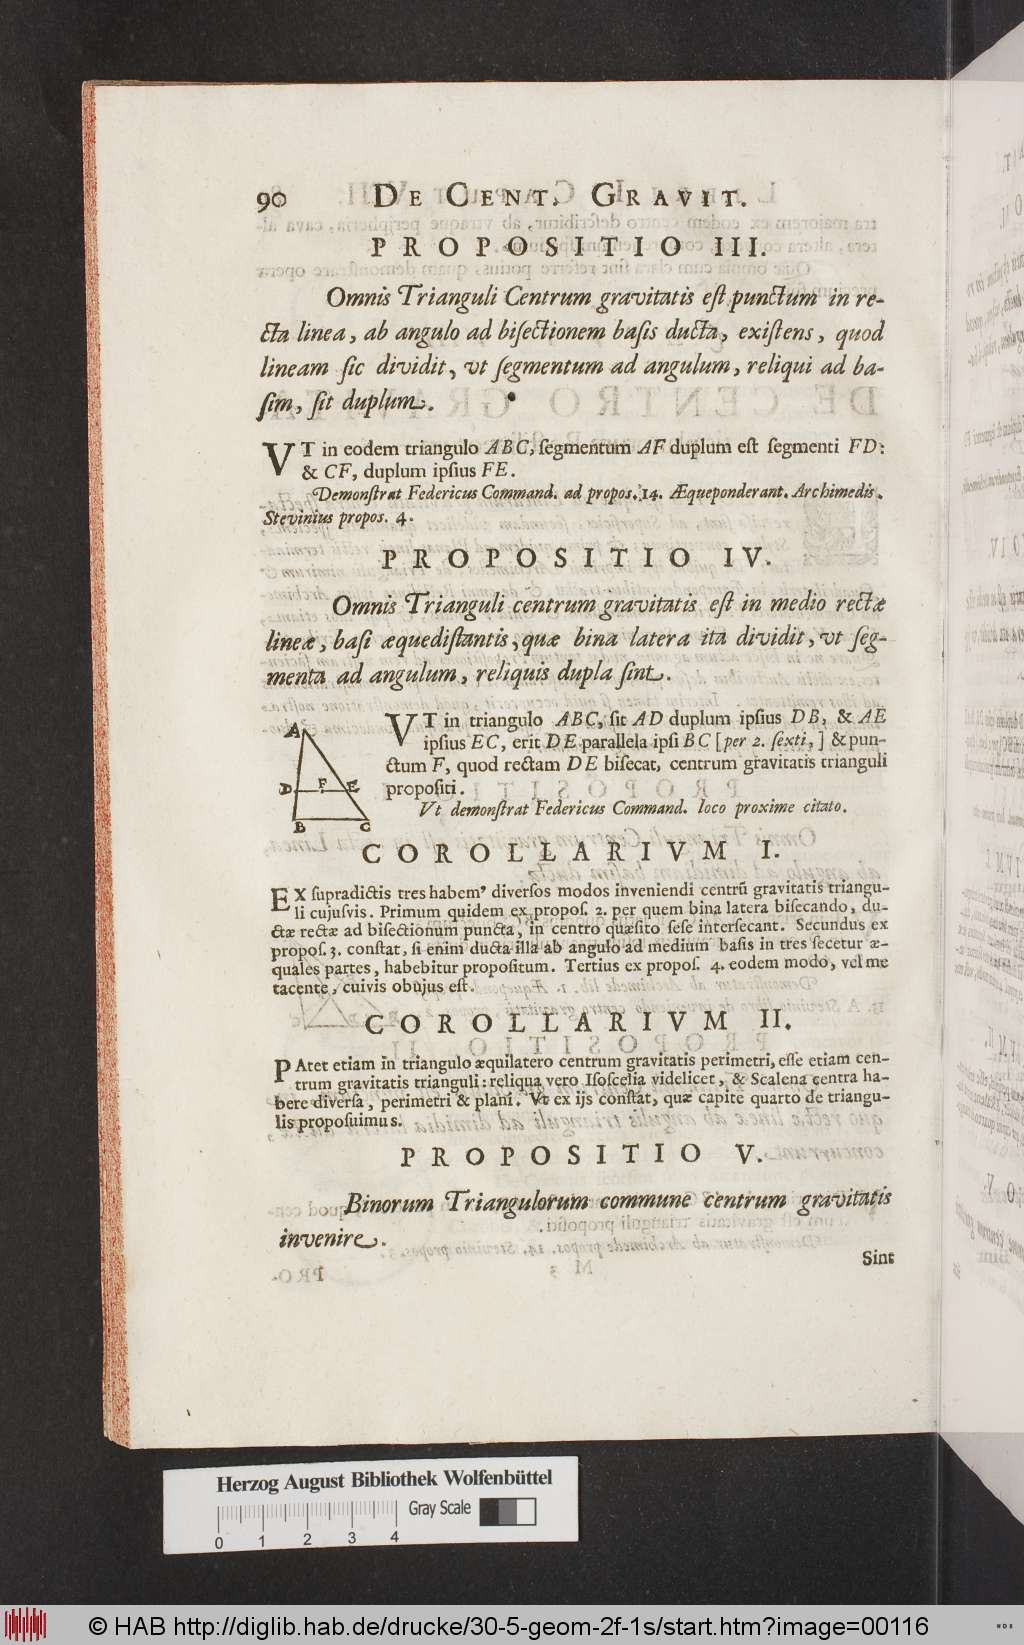 90 DE CENT. GRAVIT.
PROPOSITIO III.
Omnis Trianguli Centrum gravitatis eſt punctum in re-
cta linea, ab angulo ad biſectionem baſis ducta, exiſtens, quod
lineam ſic dividit, vt ſegmentum ad angulum, reliqui ad ba-
ſim, ſit duplum.
VT in eodem triangulo ABC, ſegmentum AF duplum eſt ſegmenti FD:
& CF, duplum ipſius FE.
Demonſtrat Federicus Command. ad propoſ. 14. Æqueponderant. Archimedis.
Stevinius propoſ. 4.
PROPOSITIO IV.
Omnis Trianguli centrum gravitatis eſt in medio rectæ
lineæ, baſi æquediſtantis, quæ bina latera ita dividit, vt ſeg-
menta ad angulum, reliquis dupla ſint.
VT in triangulo ABC, ſit AD duplum ipſius DB, & AE
ipſius EC, erit DE parallela ipſi BC [per 2. ſexti,] & pun-
ctum F, quod rectam DE biſecat, centrum gravitatis trianguli
propoſiti.
Vt demonſtrat Federicus Command. loco proxime citato.
A
D F E
B C
COROLLARIVM I.
EX ſupradictis tres habem' diverſos modos inveniendi centrū gravitatis triangu-
li cujuſvis. Primum quidem ex propoſ. 2. per quem bina latera biſecando, du-
ctæ rectæ ad biſectionum puncta, in centro quæſito ſeſe interſecant. Secundus ex
propoſ. 3. conſtat, ſi enim ducta illa ab angulo ad medium baſis in tres ſecetur æ-
quales partes, habebitur propoſitum. Tertius ex propoſ. 4. eodem modo, vel me
tacente, cuivis obujus eſt.
COROLLARIVM II.
PAtet etiam in triangulo æquilatero centrum gravitatis perimetri, eſſe etiam cen-
trum gravitatis trianguli: reliqua vero Iſoſcelia videlicet, & Scalena centra ha-
bere diverſa, perimetri & plani. Vt ex ijs conſtat, quæ capite quarto de triangu-
lis propoſuimus.
PROPOSITIO V.
Binorum Triangulorum commune centrum gravitatis
invenire.
Sint
Herzog August Bibliothek Wolfenbüttel
Gray Scale
0 1 2 3 4
© HAB http://diglib.hab.de/drucke/30-5-geom-2f-1s/start.htm?image=00116